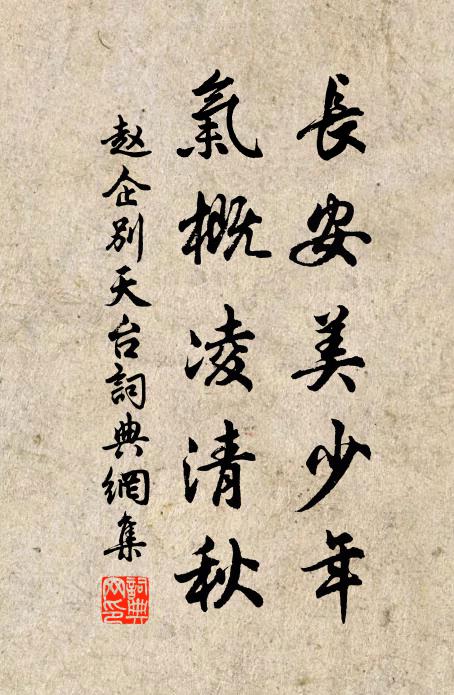 長安美少年
氣概凌清秋
赵企別天台詞典網集
詞典网印